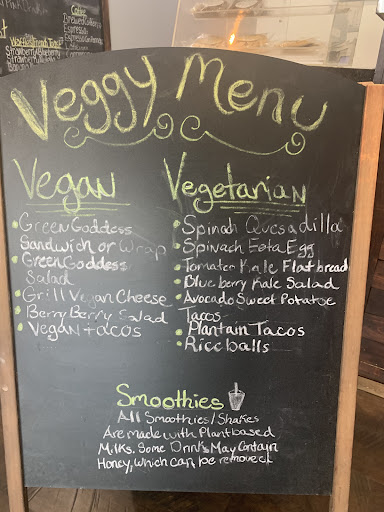 Coffee
Brewed Coffee
Espresso
Veggy Menu
Vegan
Green Goddess
Sandwich or Wrap
Green Goddess
Salad
Grill Vegan Cheese
Berry Berry Salad
Vegan tacos
Vegetarian
Spinach Quesadilla
Spinach Feta Egg
Tomater Kale Flatbread
Blueberry Kale Salad
Avocado Sweet Potatoe
Tacos
Plantain Tacos
Rice balls
Smoothies
All Smoothies/Shakes
Are made with Plant based
Milks. Some Drinks May Contain
Honey, which can be removed